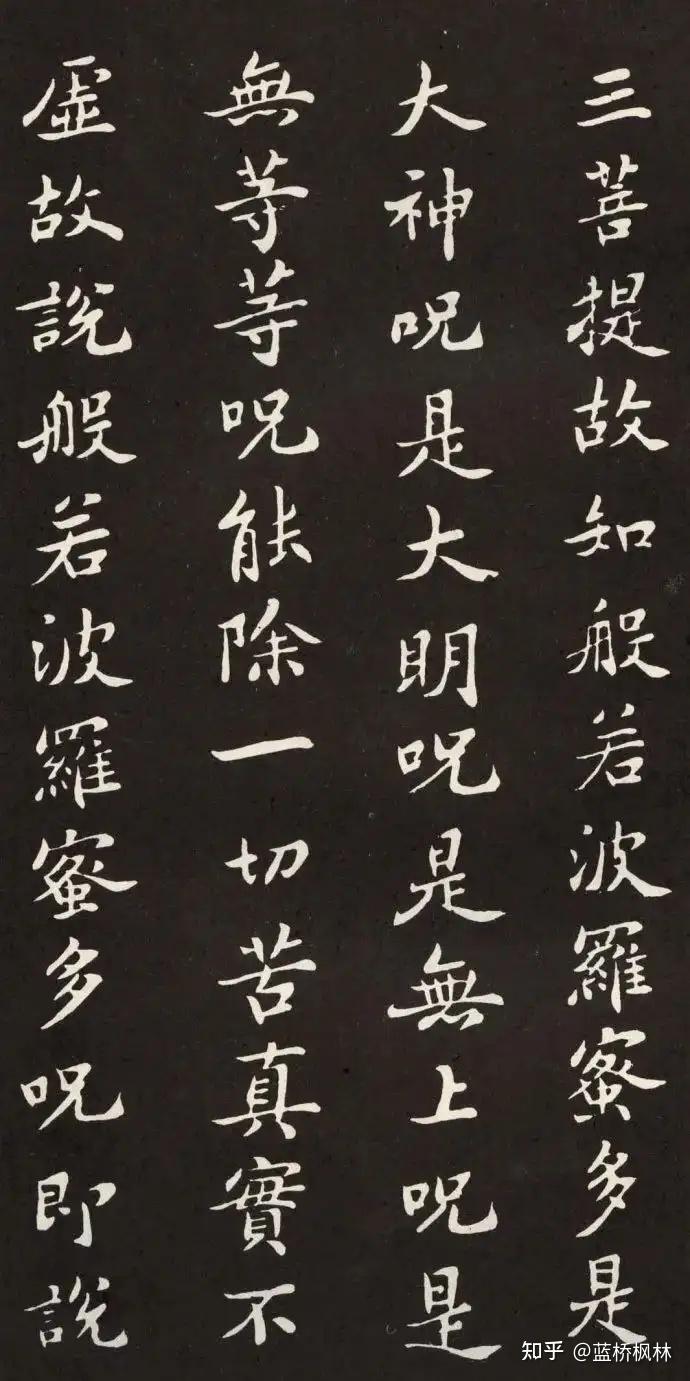 三菩提故知般若波羅蜜多是
大神呪是大明呪是無上呪是
無等等呪能除一切苦真實不
虛故說般若波羅蜜多呪即說
知乎 @蓝桥枫林